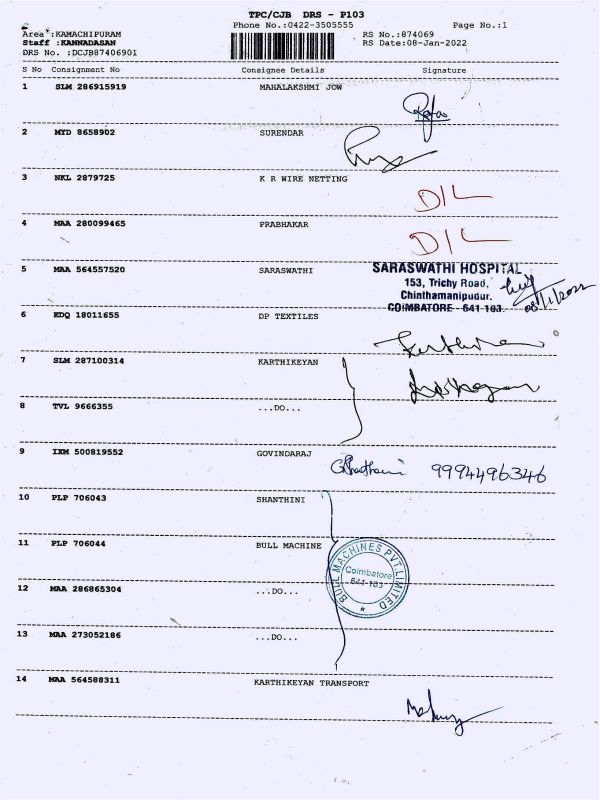 TPC/CJB DRS - P103
Phone No.:0422-3505555 Page No.:1
Area :KAMACHIPURAM RS No.:874069
Staff :KANNADASAN RS Date:08-Jan-2022
DRS No. :DCJB87406901
S No Consignment No Consignee Details Signature
1 SLM 286915919 MAHALAKSHMI JOW
2 MYD 8658902 SURENDAR
3 NKL 2879725 K R WIRE NETTING
D/L
4 MAA 280099465 PRABHAKAR
D/L
5 MAA 564557520 SARASWATHI
SARASWATHI HOSPITAL
153, Trichy Road,
Chinthamanipudur.
COIMBATORE - 641 103.
08/1/2022
6 EDQ 18011655 DP TEXTILES
7 SLM 287100314 KARTHIKEYAN
8 TVL 9666355 ...DO...
9 IXM 500819552 GOVINDARAJ
9994496346
10 PLP 706043 SHANTHINI
11 PLP 706044 BULL MACHINE
BULL MACHINES PVT.LIMITED
Coimbatore
641-103
12 MAA 286865304 ...DO...
13 MAA 273052186 ...DO...
14 MAA 564588311 KARTHIKEYAN TRANSPORT